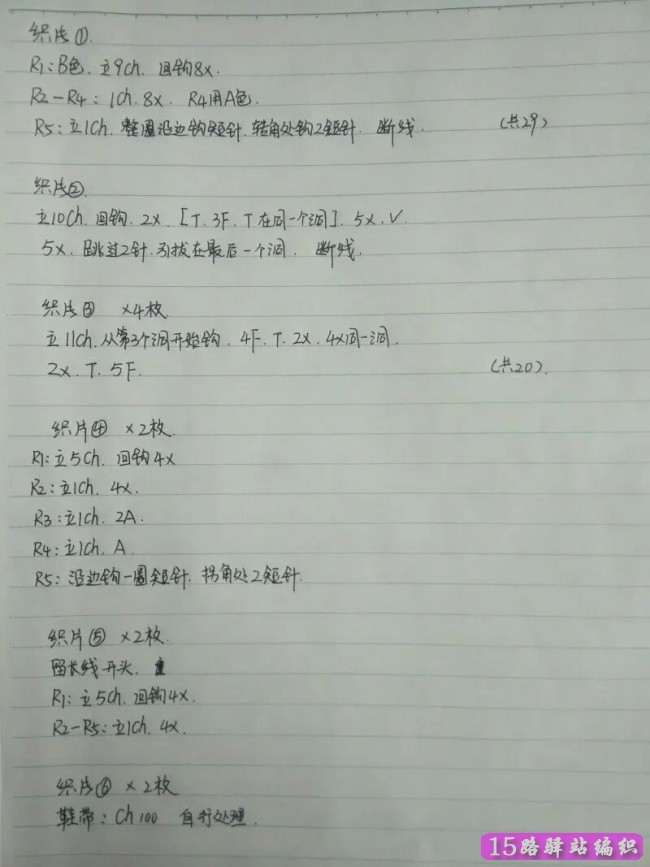 织片①.
R1:B色.立9Ch.回钩8x.
R2-R4:1Ch.8x. R4用A色.
R5:立1Ch.整圈沿边钩短针.转角处钩2短针.断线. (共29)
织片②.
立10Ch.回钩.2x.[T.3F.T在同一个洞].5x.V
5x.跳过2针.引拔在最后一个洞.断线.
织片③ ×4枚
立11Ch.从第3个洞开始钩.4F.T.2x.4x同一洞.
2x.T.5F. (共20).
织片④ ×2枚.
R1:立5Ch.回钩4x
R2:立1Ch.4x.
R3:立1Ch.2A.
R4:立1Ch.A.
R5:沿边钩一圈短针.拐角处2短针.
织片⑤ ×2枚.
留长线开头.
R1:立5Ch.回钩4x.
R2-R5:立1Ch.4x.
织片⑥ ×2枚
鞋带:Ch100 自行处理.
15路驿站编织